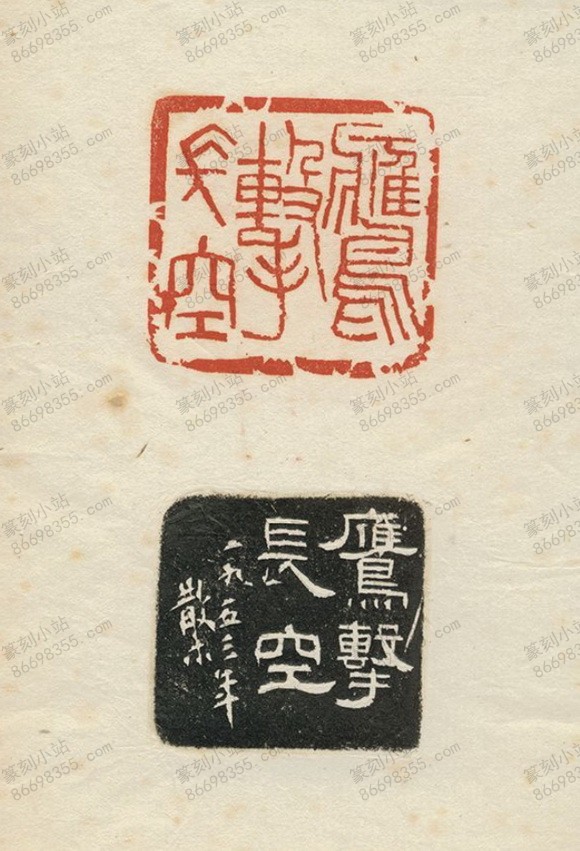 鷹
擊
長空
鷹擊
長空
一九五三年
散木
篆刻小站
86698355.com